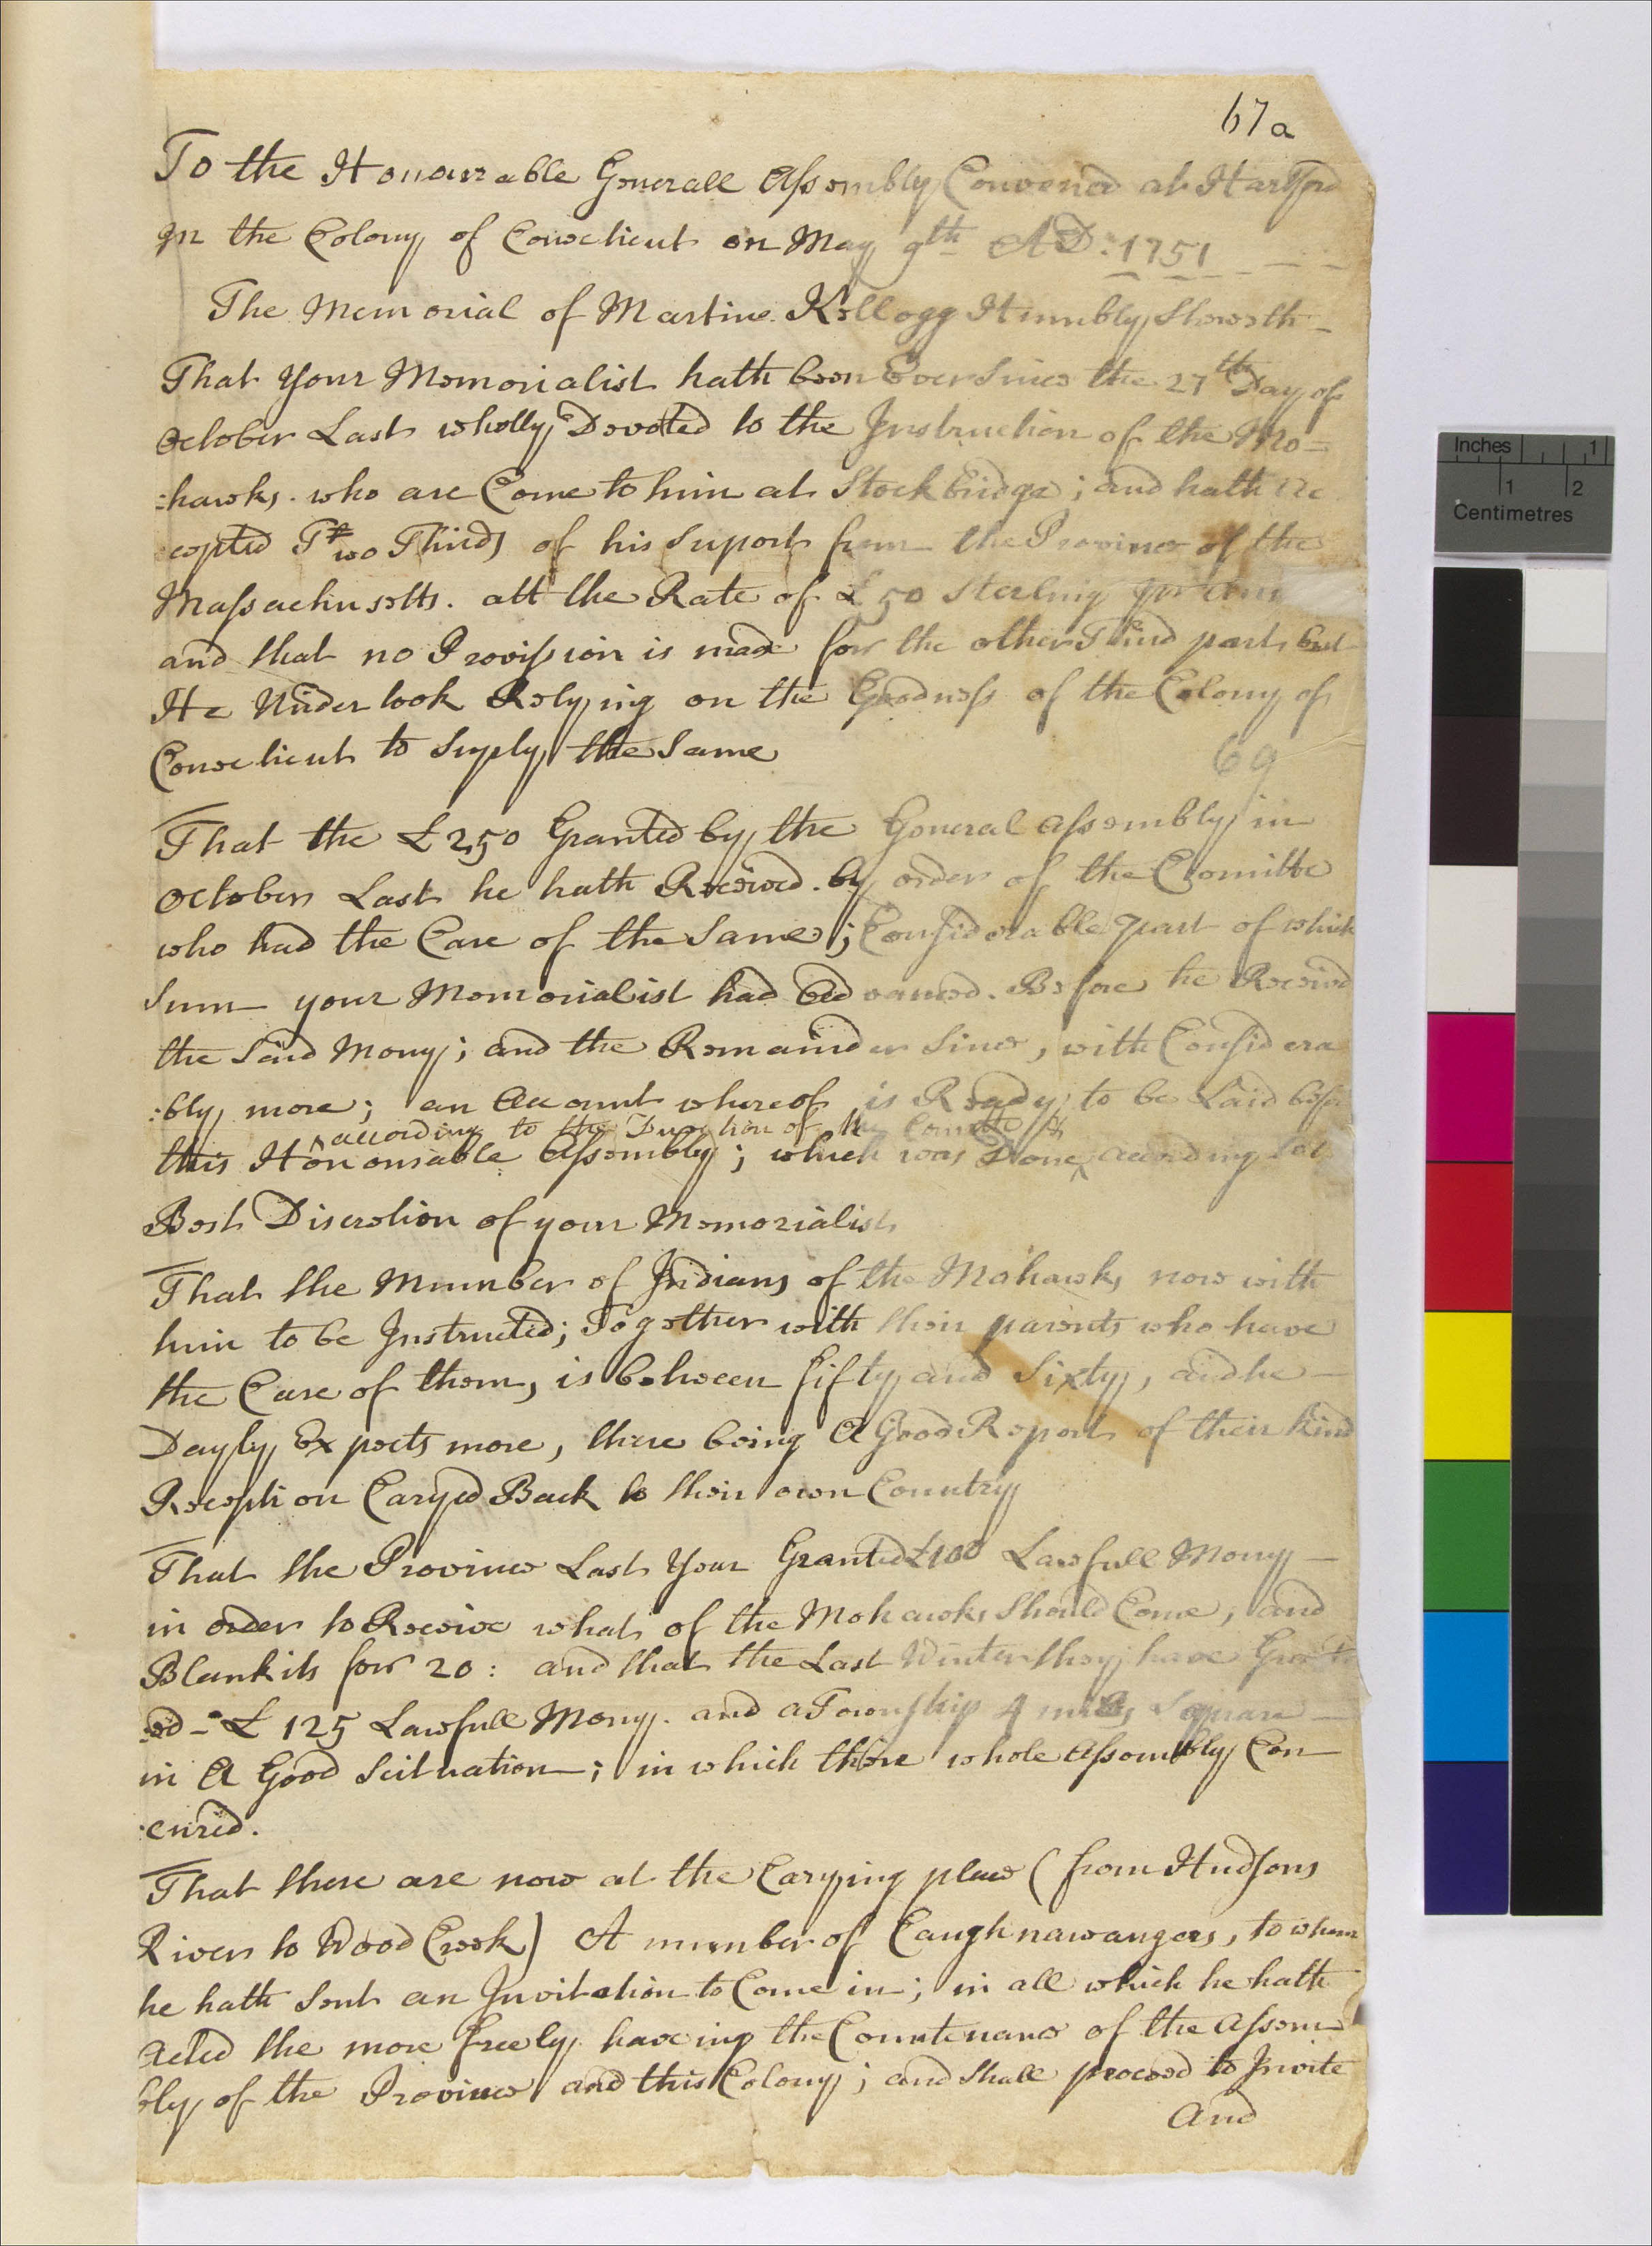 67a
To the Honourable Generall Assembly Convened at Hartford
In the Colony of Conecticut on May 9th AD: 1751
The Memorial of Martin Kellogg Humbly Sheweth
That Your Memorialist hath been Ever Since the 27th Day of
October Last wholly Devoted to the Instruction of the Mo=
:hawks. who are Come to him at Stockbridge; and hath Re
cepted Two Thirds of his Suport from the Province of the
Massachusetts. att the Rate of £50 Sterling
and that no Provission is made for the other Third part but
He Undertook Relying on the Goodness of the Colony of
Conecticut to Suply the Same
69
That the £250 Granted by the General Assembly in
October Last he hath Received. by order of the Comitte
who had the Care of the Same; Considerable part of which
Sum your Memorialist had Advanced. Before he Received
the Said Mony; and the Remainder Since, with Considera
:bly more; an Account whereof is Ready to be Laid before
according to the Direction of the Comitte &
this Honourable Assembly; which was Done according to
Best Discretion of your Memorialist
That the Number of Indians of the Mohawks now with
him to be Instructed; Together with their parents who have
the Care of them, is between fifty and Sixty, and he
Dayly Expects more, there being A Good Report of their kind
Reception Caryed Back to their own Country
That the Province Last Year Granted £100 Lawfull Mony
in order to Receive what of the Mohawks Should Come, and
Blankits for 20: and that the Last Winter they have Grant
:ed - £125 Lawfull Mony. and a Township 4 miles Square
in A Good Scituation; in which there whole Assembly Con
:cured.
That there are now at the Carying place (from Hudsons
River to Wood Creek) A number of Caughnawangers, to whom
he hath Sent an Invitation to Come in; in all which he hath
Acted the more freely haveing the Countenance of the Assem
bly of the Province and this Colony; and Shall proceed to Invite
And